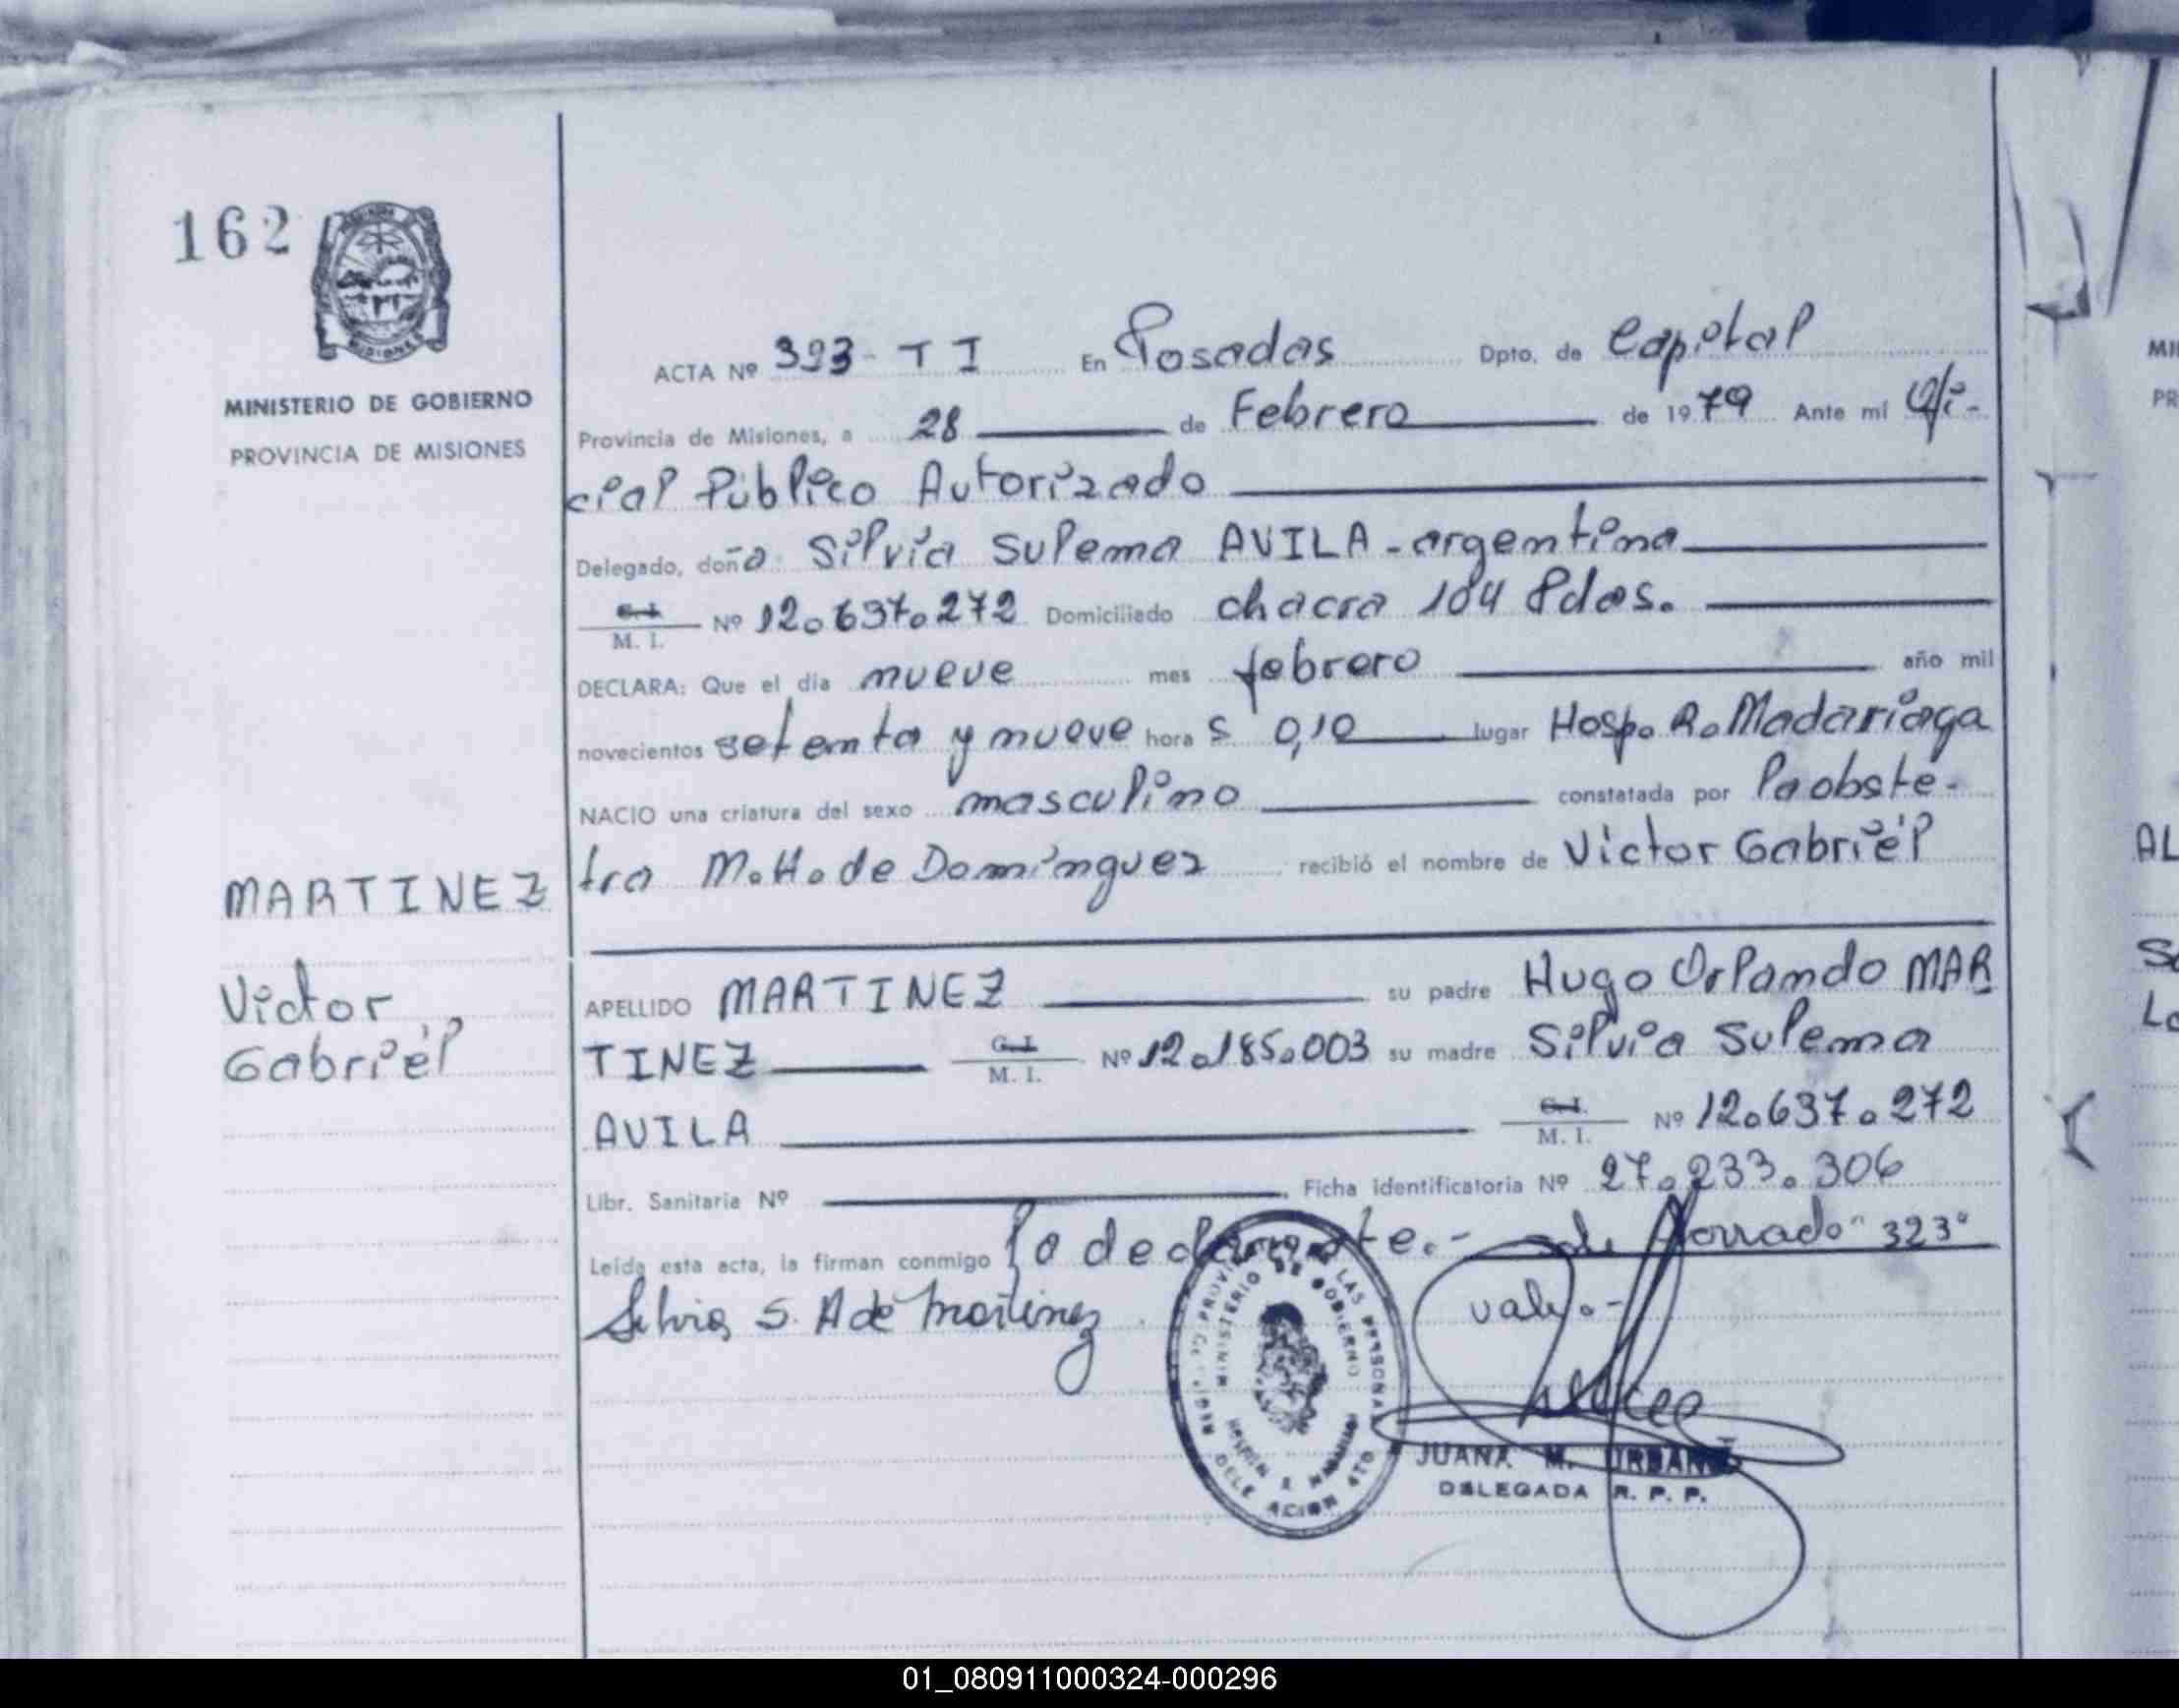 162
MINISTERIO DE GOBIERNO
PROVINCIA DE MISIONES
MARTINEZ
Victor
Gabriél
ACTA Nº 323 - T I En Posadas Dpto. de Capital
Provincia de Misiones, a 28 de Febrero de 1979 Ante mi Ofi-
cial Público Autorizado
Delegado, doña Silvia Sulema AVILA - argentina
C. I. M. I. Nº 12.637.272 Domiciliado chacra 104 Pdas.
DECLARA: Que el día nueve mes febrero año mil
novecientos setenta y nueve hora s 0,10 lugar Hosp. R. Madariaga
NACIO una criatura del sexo masculino constatada por la obste-
tra M. H. de Domínguez recibió el nombre de Victor Gabriél
APELLIDO MARTINEZ su padre Hugo Orlando MAR
TINEZ C. I. M. I. Nº 12.185.003 su madre Silvia Sulema
AVILA C. I. M. I. Nº 12.637.272
Libr. Sanitaria Nº Ficha identificatoria Nº 27.233.306
Leída esta acta, la firman conmigo la declarante.- borrado "323"
Silvia S. A de Martinez vale.-
JUANA M.
DELEGADA R. P. P.
MINISTERIO DE GOBIERNO
LAS PERSONAS
MI
PR
AL
01_080911000324-000296